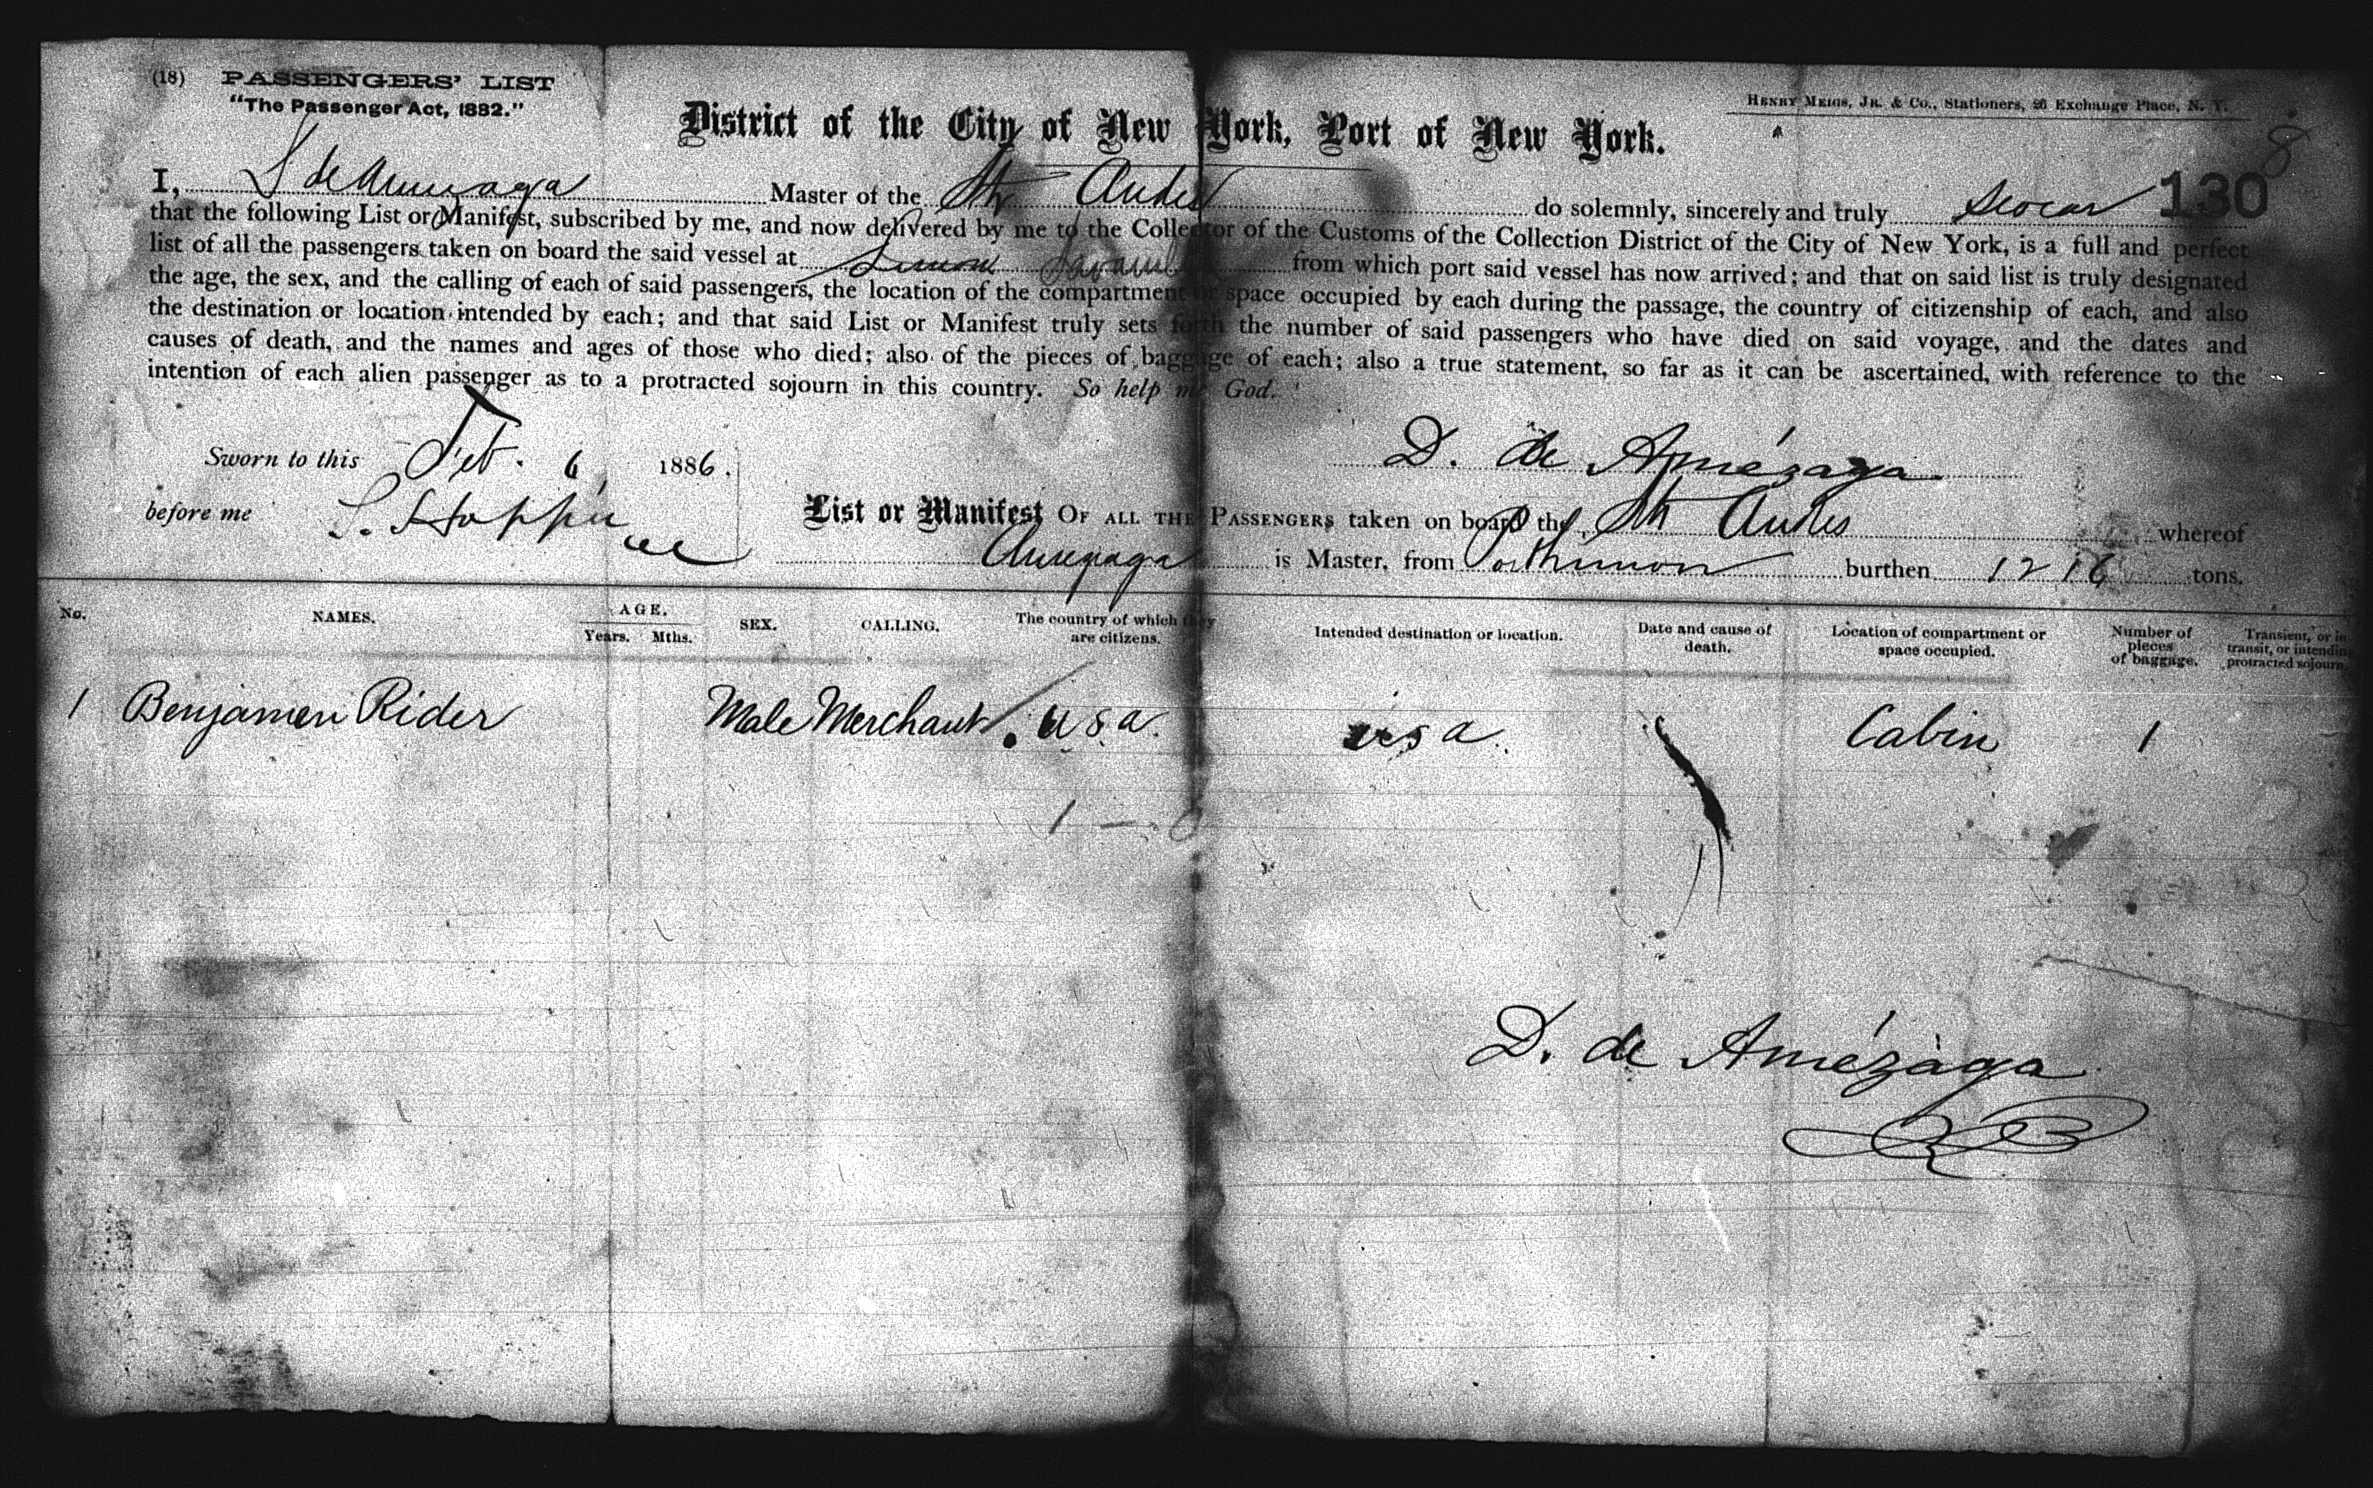 (18) PASSENGERS' LIST
"The Passenger Act, 1882."
HENRY MEIGS, JR. & CO., Stationers, 26 Exchange Place, N. Y.
District of the City of New York, Port of New York.
8
130
I, de Amezaga Master of the Str Andes do solemnly, sincerely and truly swear
that the following List or Manifest, subscribed by me, and now delivered by me to the Collector of the Customs of the Collection District of the City of New York, is a full and perfect
list of all the passengers taken on board the said vessel at Limon Savanilla from which port said vessel has now arrived; and that on said list is truly designated
the age, the sex, and the calling of each of said passengers, the location of the compartment or space occupied by each during the passage, the country of citizenship of each, and also
the destination or location intended by each; and that said List or Manifest truly sets forth the number of said passengers who have died on said voyage, and the dates and
causes of death, and the names and ages of those who died; also of the pieces of baggage of each; also a true statement, so far as it can be ascertained, with reference to the
intention of each alien passenger as to a protracted sojourn in this country. So help me God.
Sworn to this Feb. 6, 1886.
D. de Amézaga
before me
List or Manifest OF ALL THE PASSENGERS taken on board the Str Andes whereof
Amezaga is Master, from Port Limon burthen 1216 tons.
No. NAMES. AGE. Years. Mths. SEX. CALLING. The country of which they are citizens. Intended destination or location. Date and cause of death. Location of compartment or space occupied. Number of pieces of baggage. Transient, or in transit, or intending protracted sojourn.
1 Benjamin Rider Male Merchant U.S.A. U.S.A. Cabin 1
D. de Amézaga